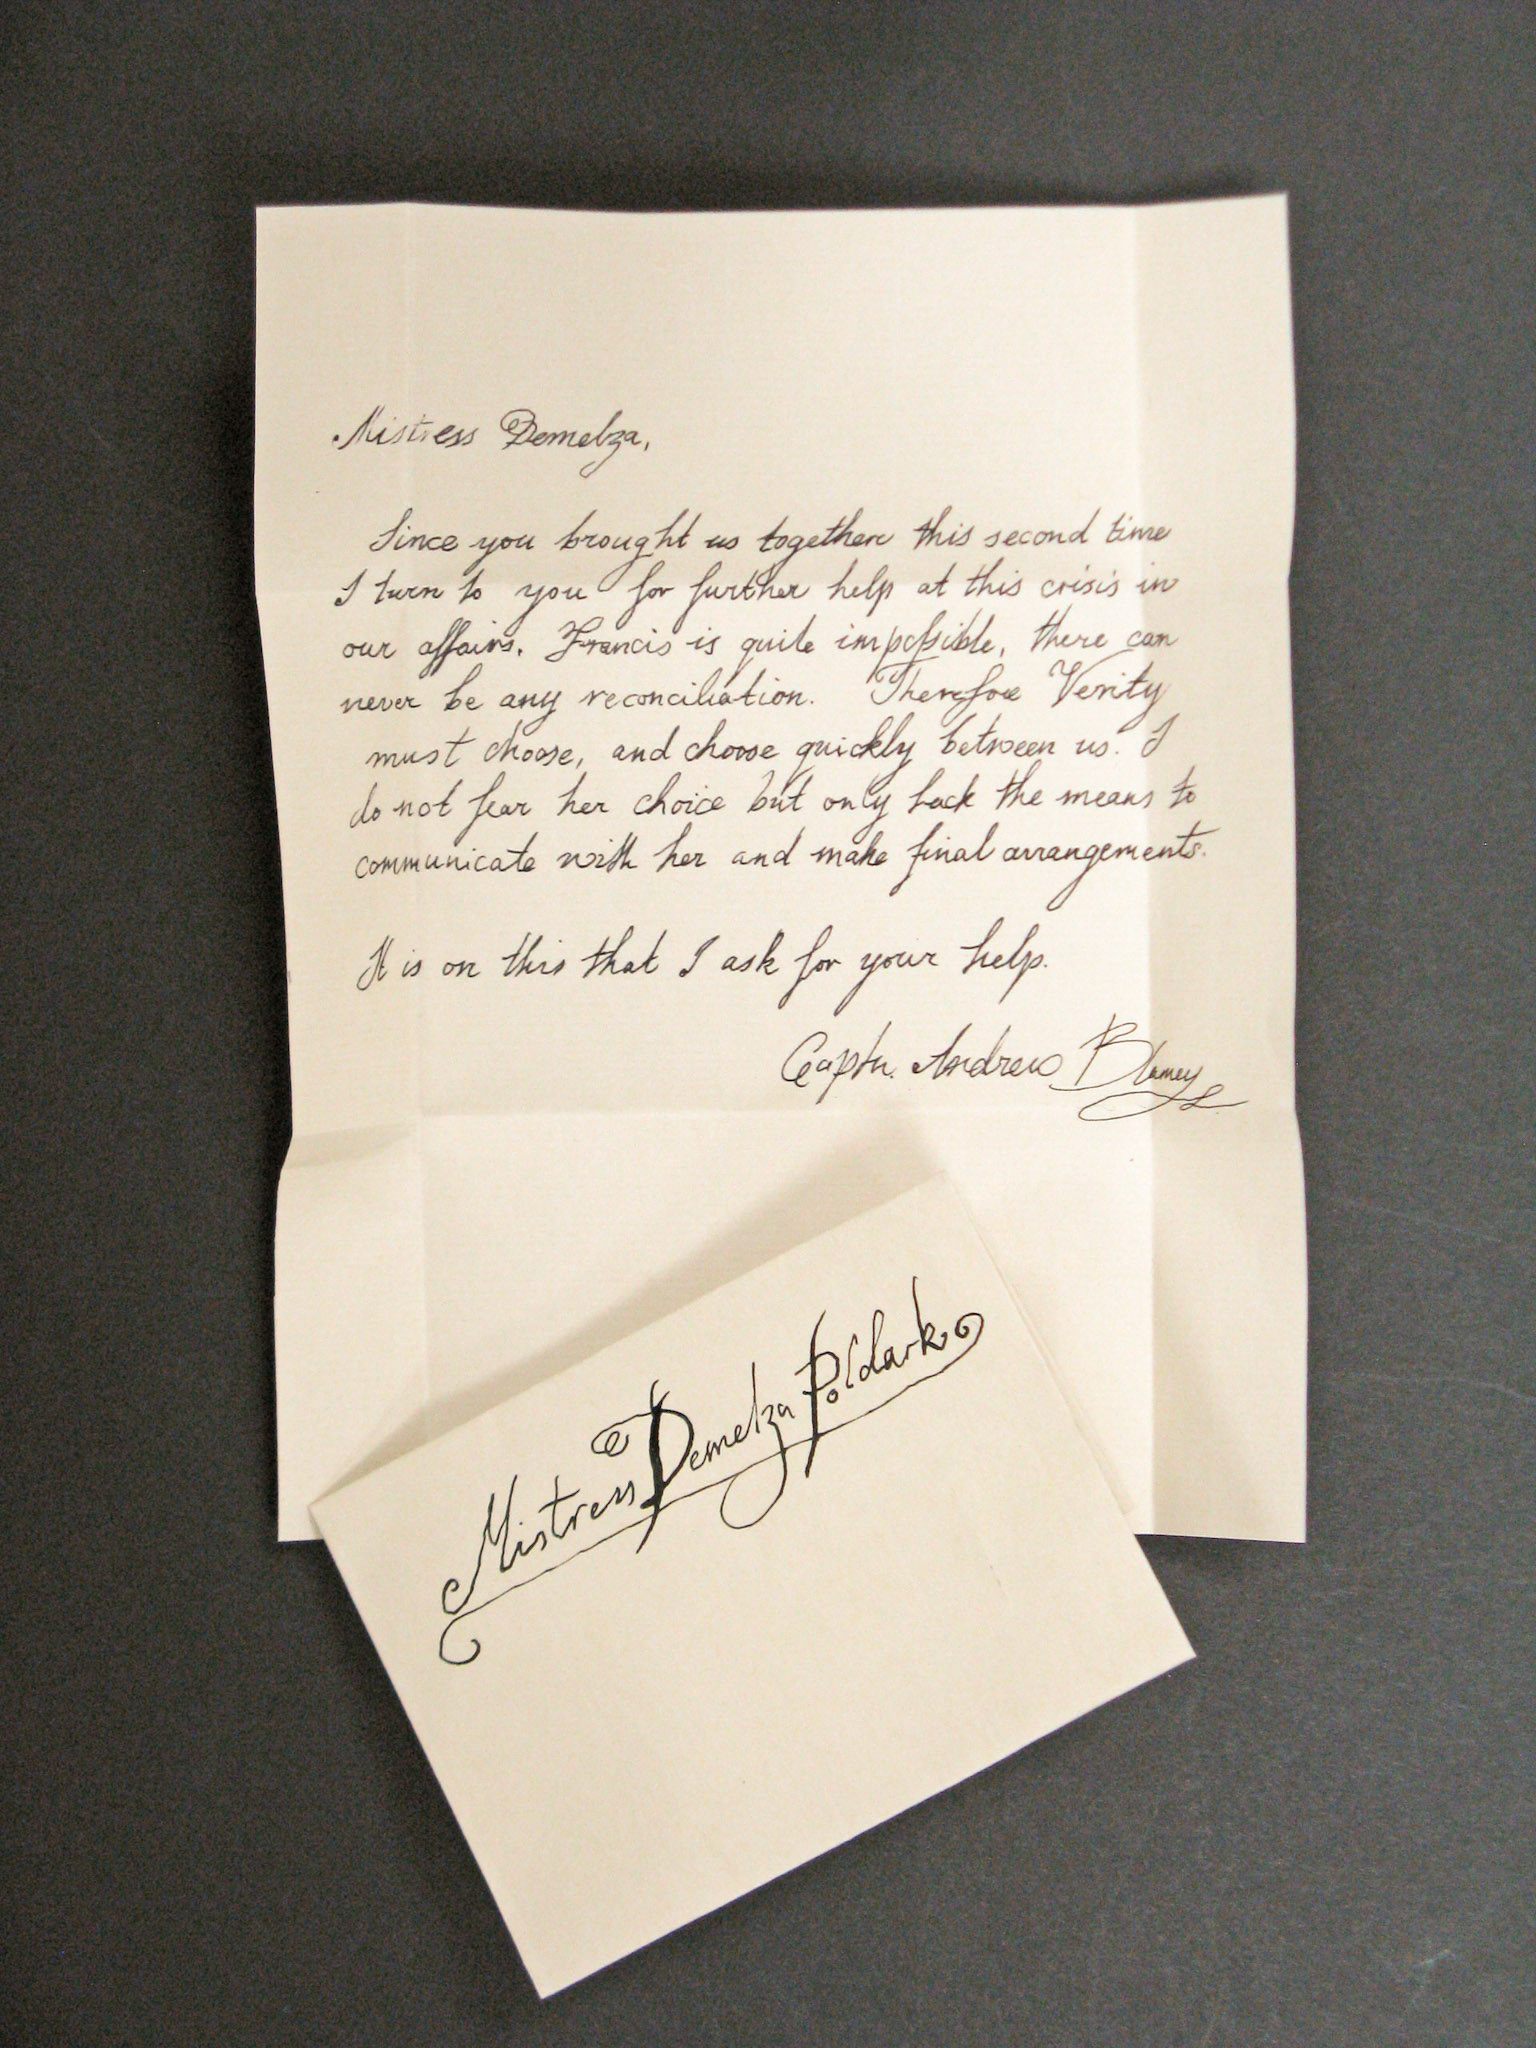 Mistress Demelza,
Since you brought us together this second time
I turn to you for further help at this crisis in
our affairs. Francis is quite impossible, there can
never be any reconciliation. Therefore Verity
must choose, and choose quickly between us. I
do not fear her choice but only lack the means to
communicate with her and make final arrangements.
It is on this that I ask for your help.
Captn. Andrew Blamey
Mistress Demelza Poldark